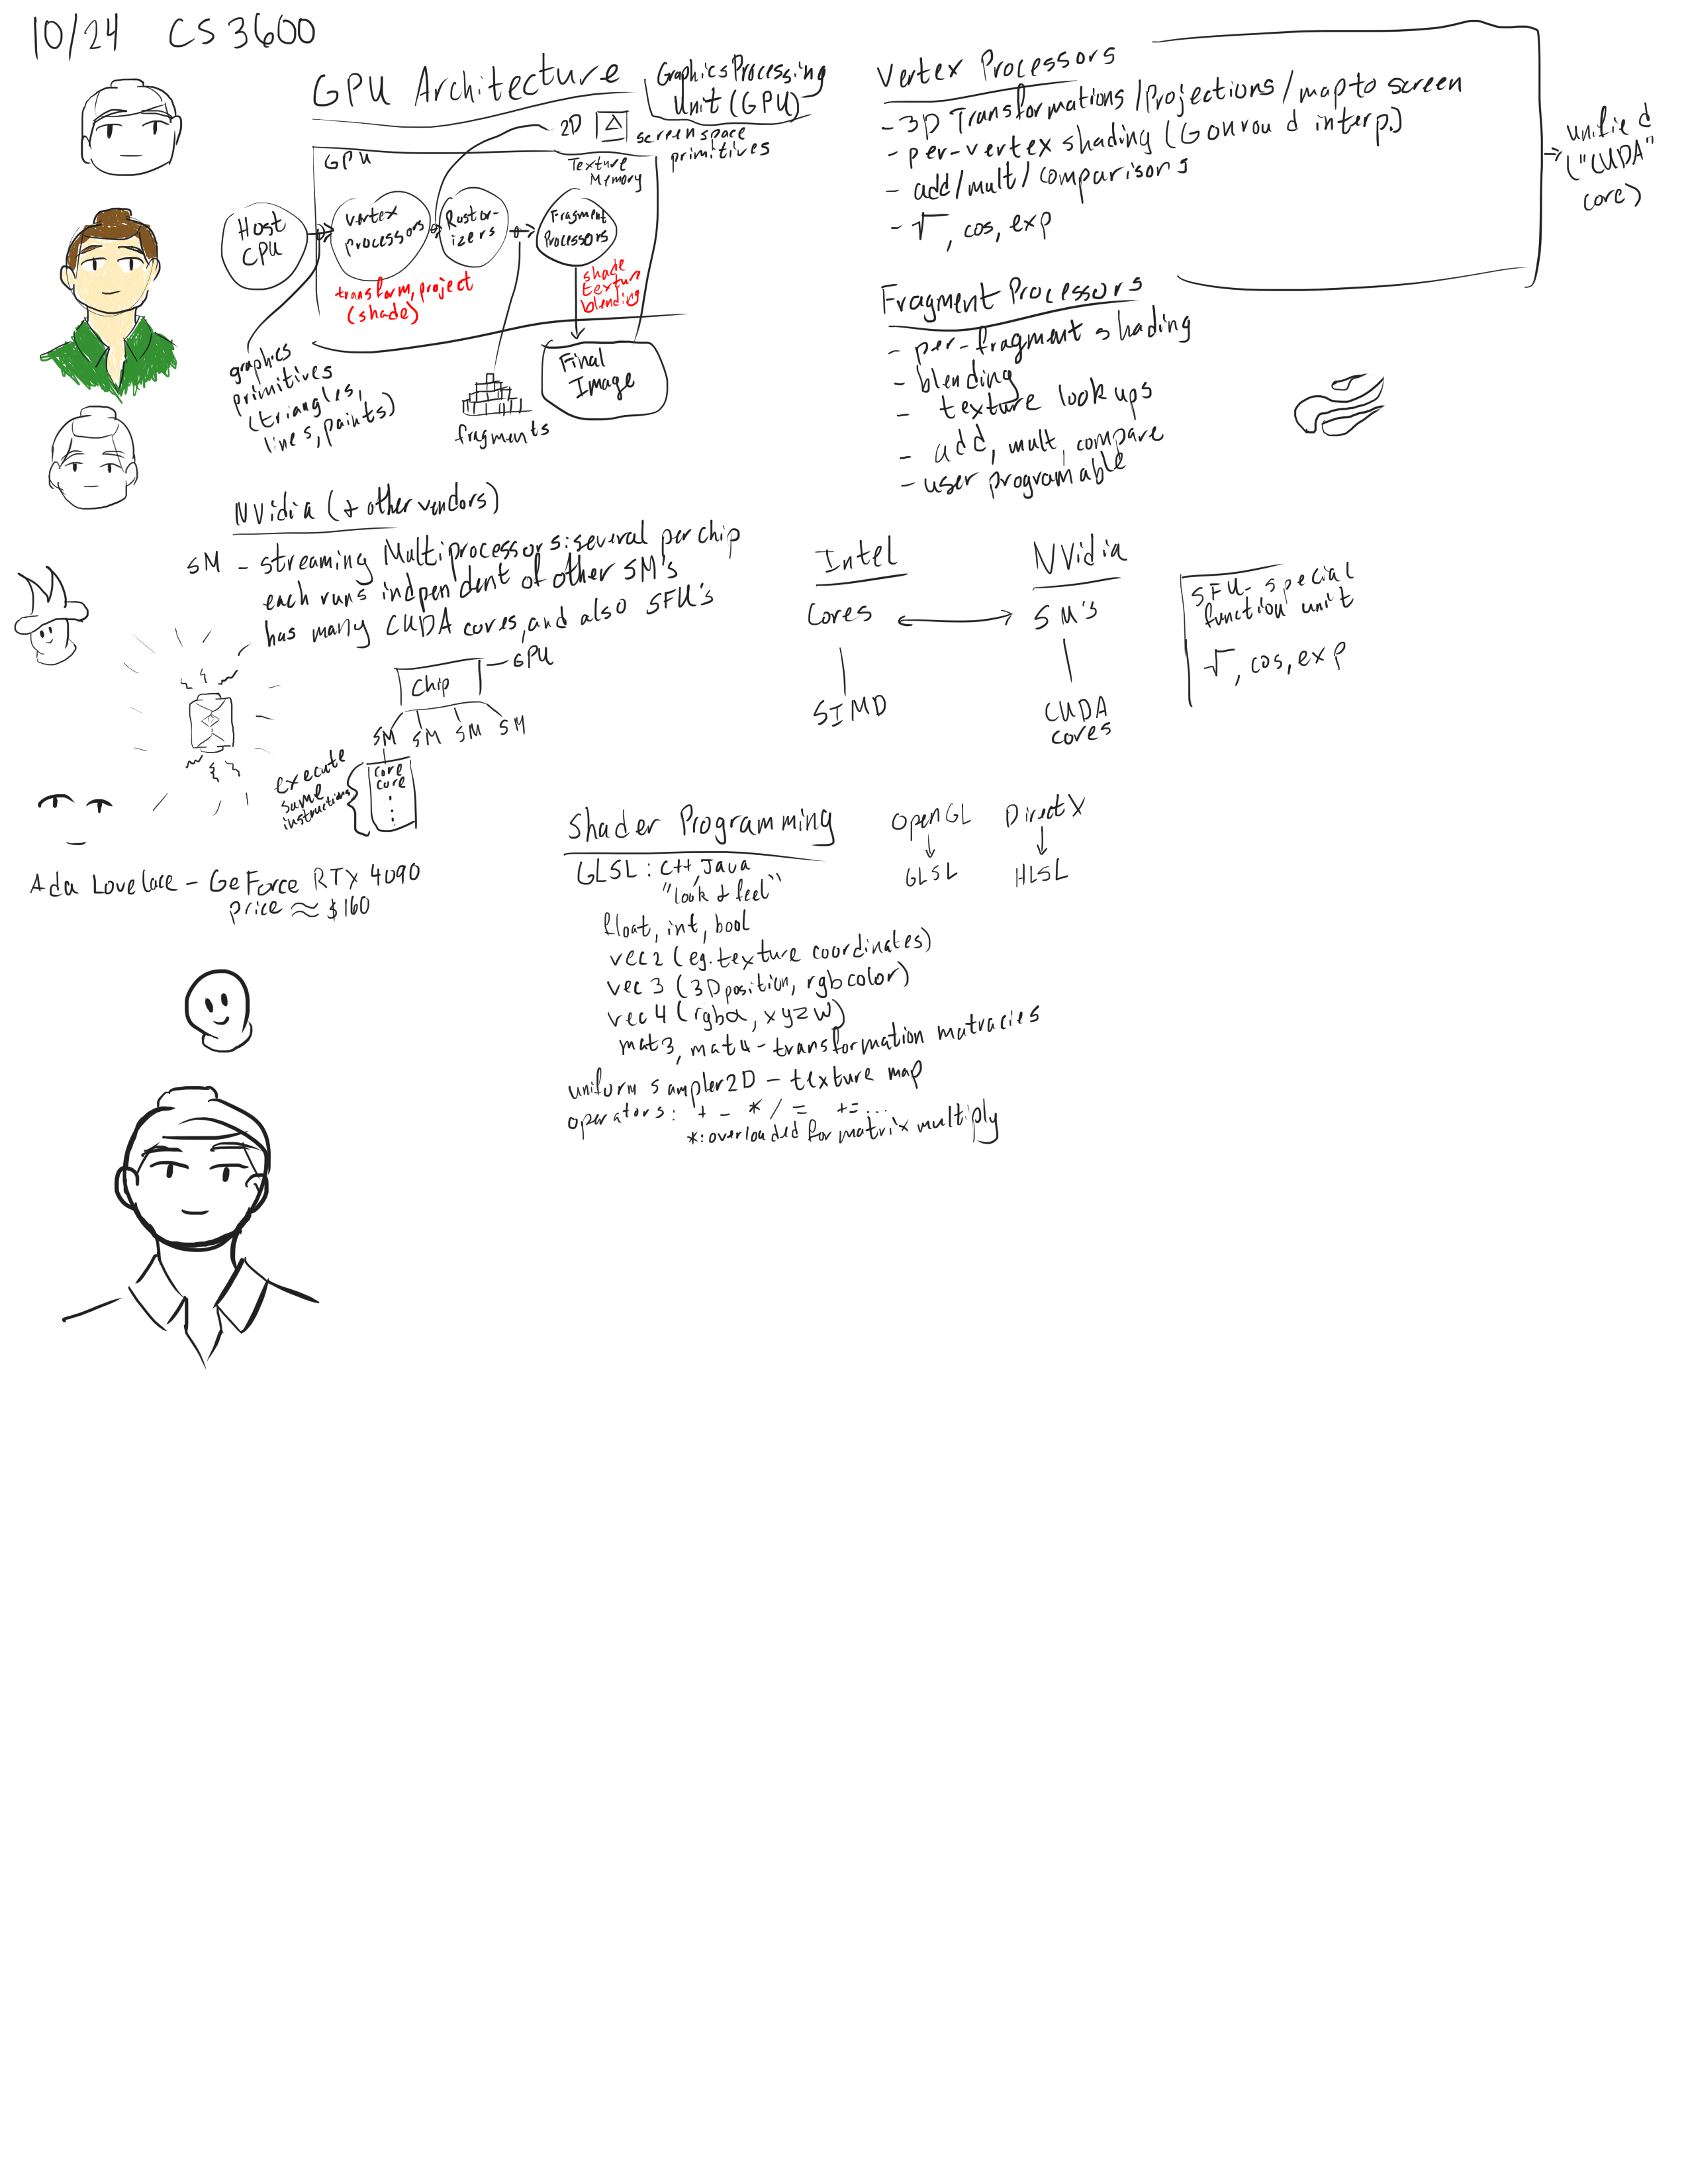 10/24 CS 3600
GPU Architecture
Graphics Processing
Unit (GPU)
2D
screen space
primitives
GPU
Texture
Memory
Host
CPU
vertex
processors
Rastor-
izers
Fragment
Processors
transform, project
(shade)
shade
texture
blending
graphics
primitives
(triangles,
lines, points)
fragments
Final
Image
Vertex Processors
- 3D Transformations / Projections / map to screen
- per-vertex shading (Gouroud interp.)
- add/mult/comparisons
- √, cos, exp
unified
("CUDA"
core)
Fragment Processors
- per-fragment shading
- blending
- texture lookups
- add, mult, compare
- user programable
NVidia (+ other vendors)
SM - streaming Multiprocessors: several per chip
each runs indpendent of other SM's
has many CUDA cores, and also SFU's
Chip
GPU
SM SM SM SM
core
core
execute
same
instructions
Intel
NVidia
Cores
SM'S
SIMD
CUDA
cores
SFU - special
function unit
√, cos, exp
Ada Lovelace - GeForce RTX 4090
price ≈ $160
Shader Programming
OpenGL DirectX
GLSL HLSL
GLSL: C++, Java
"look & feel"
float, int, bool
vec2 (eg. texture coordinates)
vec3 (3D position, rgb color)
vec4 (rgbα, xyzw)
mat3, mat4 - transformation matracies
uniform sampler2D - texture map
operators: + - * / = +=...
*: overloaded for matrix multiply